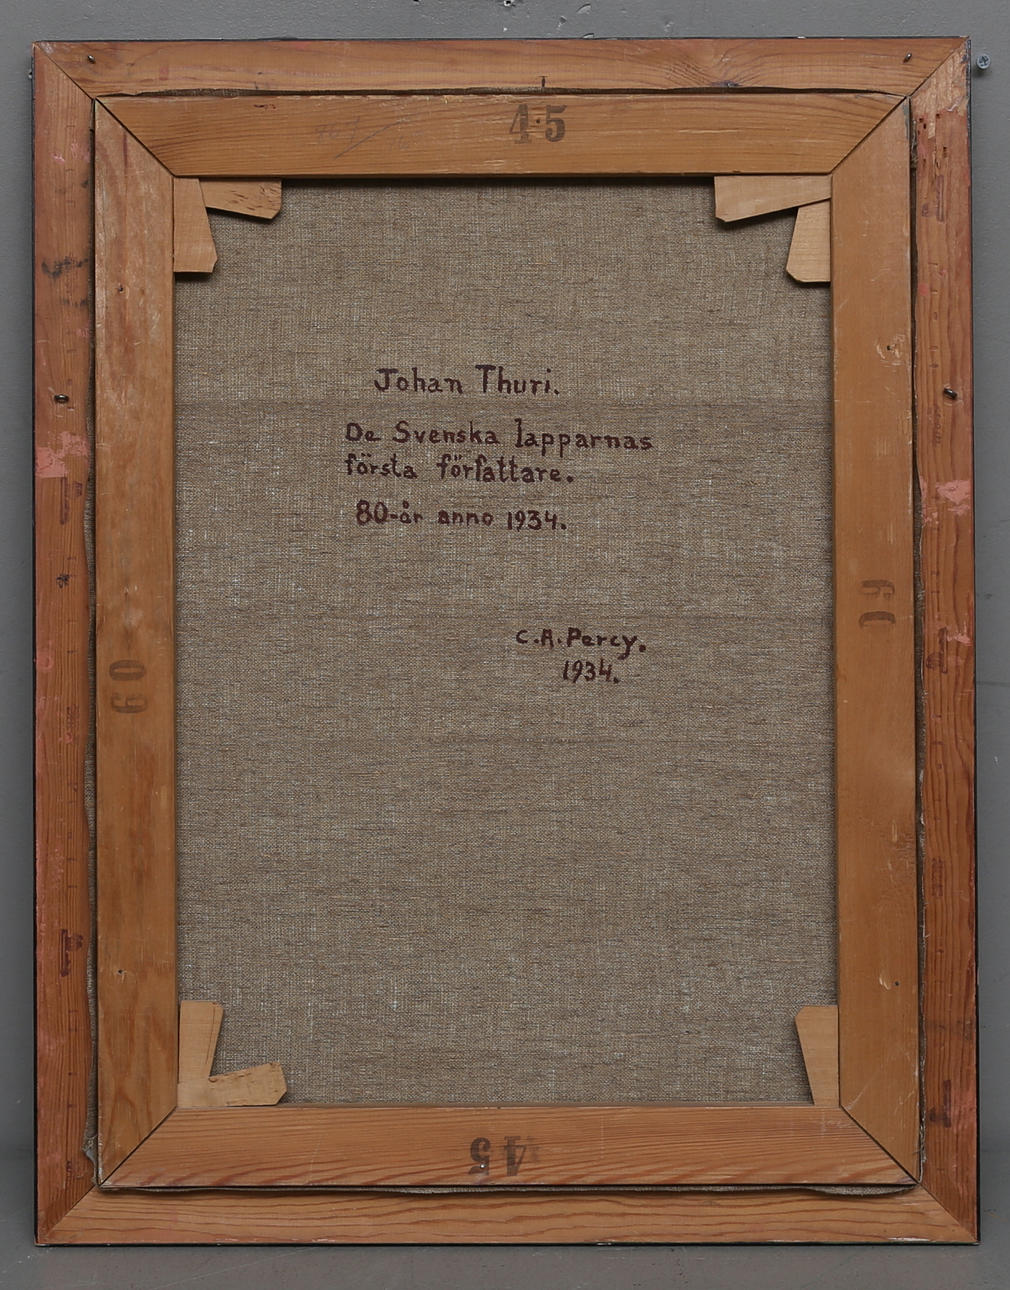 45
Johan Thuri.
De Svenska lapparnas
första författare.
80-år anno 1934.
C.A. Percy.
1934.
60
60
45